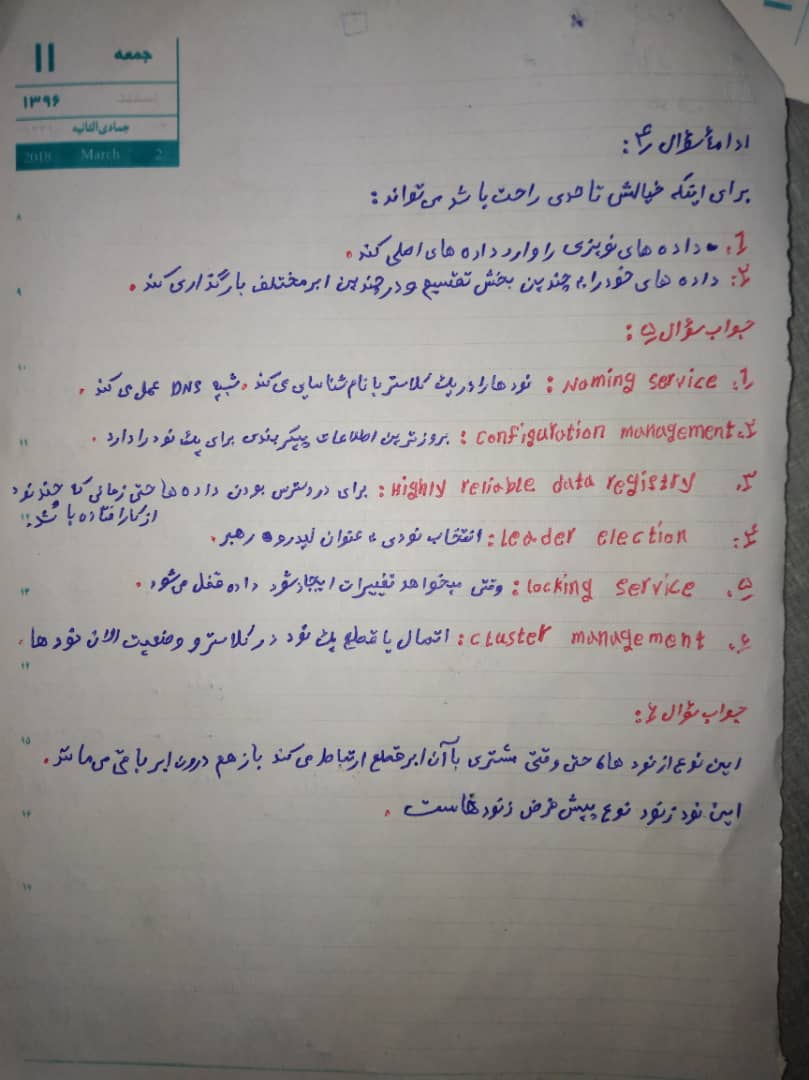 جمعه
۱۱
اسفند
۱۳۹۶
جمادی الثانیه
2018 March 2
ادامه سؤال ۴:
برای اینکه خیالش تا حدی راحت باشد می تواند:
1. داده های نویزی را وارد داده های اصلی کند.
۲: داده های خود را به چندین بخش تقسیم و در چندین ابر مختلف بارگذاری کند.
جواب سؤال ۵:
1. Naming service: نودها را در یک کلاستر با نام شناسایی می کند. شبیه DNS عمل می کند.
۲. configuration management: بروزترین اطلاعات پیکربندی برای یک نود را دارد.
۳. Highly reliable data registry: برای در دسترس بودن داده ها حتی زمانی که چند نود
از کار افتاده باشد.
۴: Leader election: انتخاب نودی به عنوان لیدر و رهبر.
۵. Locking service: وقتی میخواهد تغییرات ایجاد شود داده قفل می شود.
۶. cluster management: اتصال یا قطع یک نود در کلاستر و وضعیت الان نود ها.
جواب سؤال ۶:
این نوع از نود ها، حتی وقتی مشتری با آن ابر قطع ارتباط می کند باز هم درون ابر باقی می مانند.
این نود زنود نوع پیش فرض زنود هاست.
۸
۹
۱۰
۱۱
۱۲
۱۳
۱۴
۱۵
۱۶
۱۷